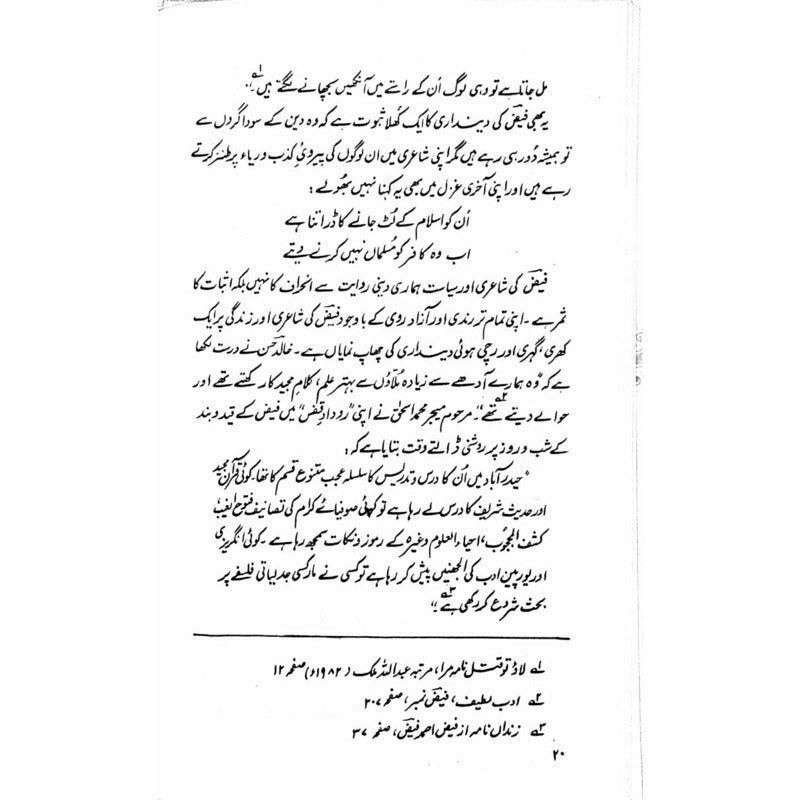 مل جاتا ہے تو وہی لوگ اُن کے راستے میں آنکھیں بچھانے لگتے ہیں"۔۱؎
یہ بھی فیضؔ کی دینداری کا ایک کُھلا ثبوت ہے کہ وہ دین کے سوداگردں سے
تو ہمیشہ دُور ہی رہے ہیں مگر اپنی شاعری میں ان لوگوں کی پیرویٔ کذب و ریاء پر طنز کرتے
رہے ہیں اور اپنی آخری غزل میں بھی یہ کہنا نہیں بھُولے :
اُن کو اسلام کے لُٹ جانے کا ڈر اتنا ہے
اب وہ کافر کو مُسلماں نہیں کرنے دیتے
فیضؔ کی شاعری اور سیاست ہماری دینی روایت سے انحراف کا نہیں بلکہ اثبات کا
ثمر ہے ۔ اپنی تمام تر رندی اور آزاد روی کے باوجود فیضؔ کی شاعری اور زندگی پر ایک
کھری، گہری اور رچی ہوئی دینداری کی چھاپ نمایاں ہے ۔ خالد حسن نے درست لکھا
ہے کہ "وہ ہمارے آدھے سے زیادہ مُلّاؤں سے بہتر علم، کلامِ مجید کا رکھتے تھے اور
حوالے دیتے تھے"۲؎۔ مرحوم میجر محمد اسحٰق نے اپنی "رودادِ قفس" میں فیض کے قید و بند
کے شب و روز پر روشنی ڈالتے وقت بتایا ہے کہ :
"حیدر آباد میں اُن کا درس و تدریس کا سلسلہ عجب متنوع قسم کا تھا۔ کوئی قرآن مجید
اور حدیث شریف کا درس لے رہا ہے تو کوئی صوفیائے کرام کی تصانیف فتوح الغیب
کشف المحجوب، احیاء العلوم وغیرہ کے رموز و نکات سمجھ رہا ہے ۔ کوئی انگریزی
اور یورپین ادب کی الجھنیں پیش کر رہا ہے تو کسی نے مارکسی جدلیاتی فلسفے پر
بحث شروع کر رکھی ہے۳؎۔"
۱؎ لاؤ تو قتل نامہ مرا، مرتبہ عبداللہ ملک (۱۹۸۲ء) صفحہ ۱۲
۲؎ ادب لطیف، فیضؔ نمبر، صفحہ ۲۰۷
۳؎ زنداں نامہ از فیض احمد فیضؔ، صفحہ ۳۷
۲۰